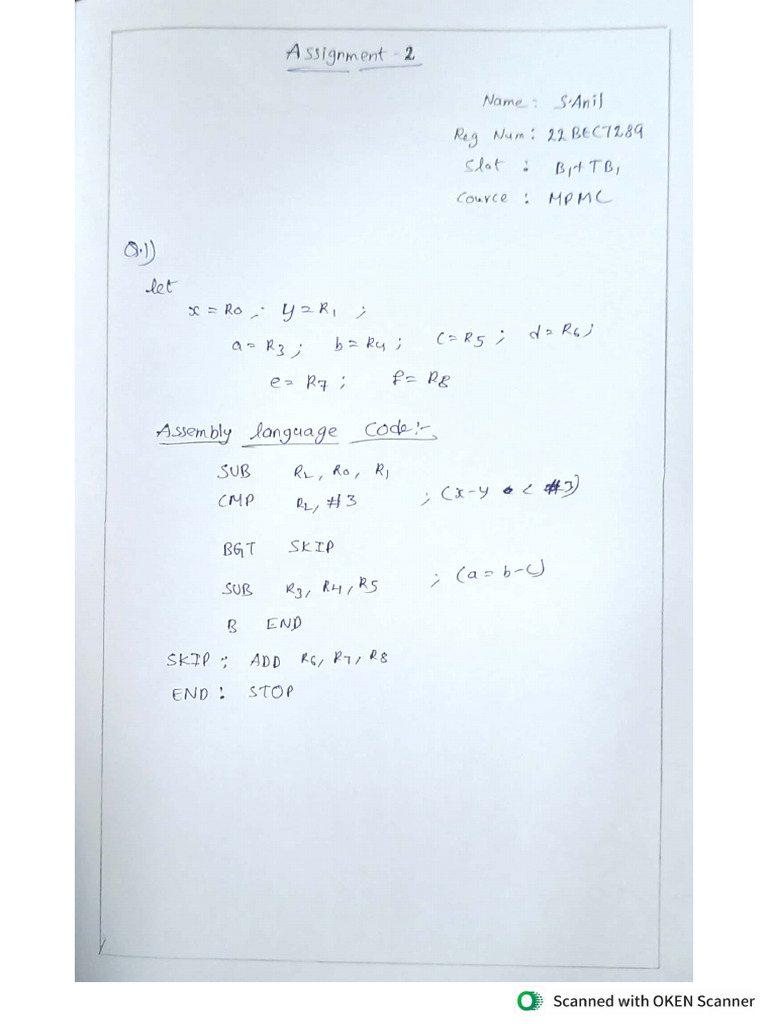 Assignment - 2
Name : S.Anil
Reg Num : 22BEC7289
Slot : B1+TB1
Cource : MPMC
Q.1)
let
x = R0 ; y = R1 ;
a = R3 ; b = R4 ; c = R5 ; d = R6 ;
e = R7 ; f = R8
Assembly language Code :-
SUB R2, R0, R1
CMP R2, #3 ; (x-y < #3)
BGT SKIP
SUB R3, R4, R5 ; (a = b-c)
B END
SKIP ; ADD R6, R7, R8
END : STOP
Scanned with OKEN Scanner